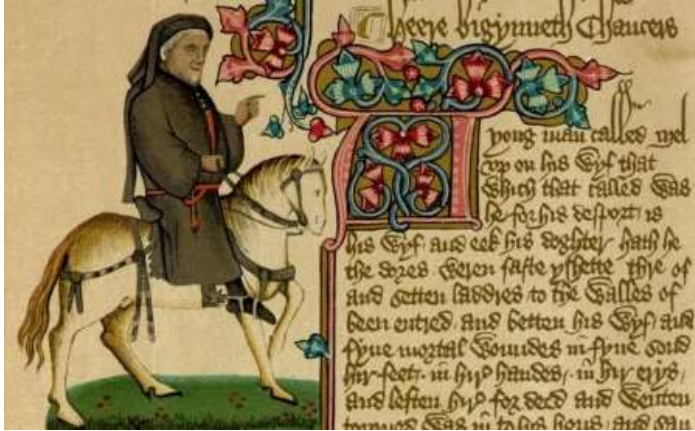 Heere bigynneth Chaucers
A yong man called Mel
vp on his wyf that
which that called was
he for his desport is
his wyf and eek his doghter hath he
the dores weren faste yshette Thre of
and setten laddres to the walles of
been entred and betten his wyf and
fyue mortal woundes in fyue sond
hir feet in hir handes in hir erys
and leften hir for deed and wenten
torned was in to his hous and sau